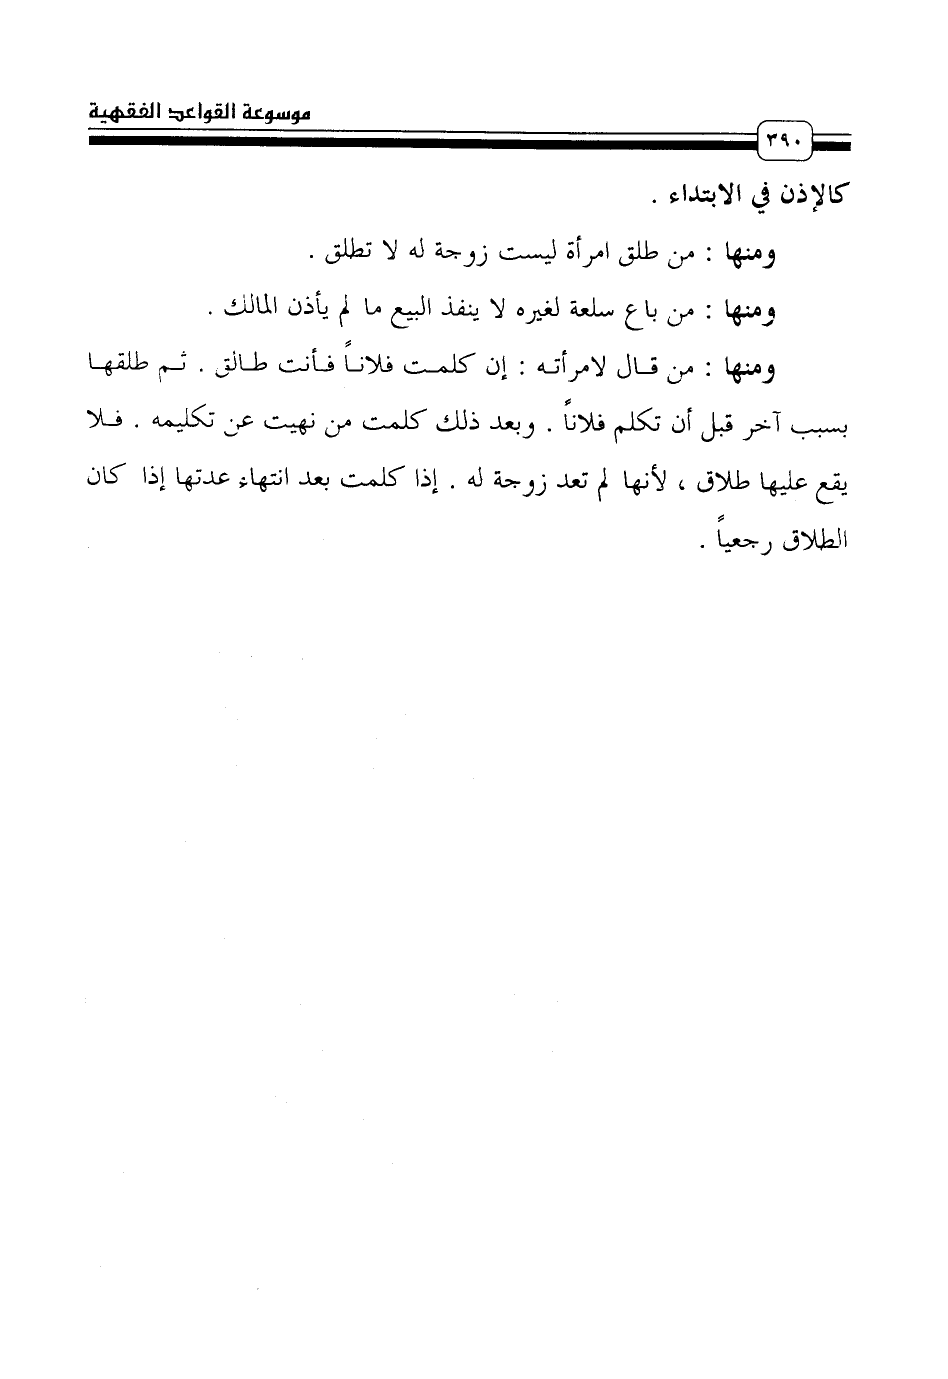 موسوعة القواعد الفقهية
٣٩٠
كالإذن في الابتداء .
ومنها : من طلق امرأة ليست زوجة له لا تطلق .
ومنها : من باع سلعة لغيره لا ينفذ البيع ما لم يأذن المالك .
ومنها : من قال لامرأته : إن كلمت فلاناً فأنت طالق . ثم طلقها
بسبب آخر قبل أن تكلم فلاناً . وبعد ذلك كلمت من نهيت عن تكليمه . فلا
يقع عليها طلاق ، لأنها لم تعد زوجة له . إذا كلمت بعد انتهاء عدتها إذا كان
الطلاق رجعياً .